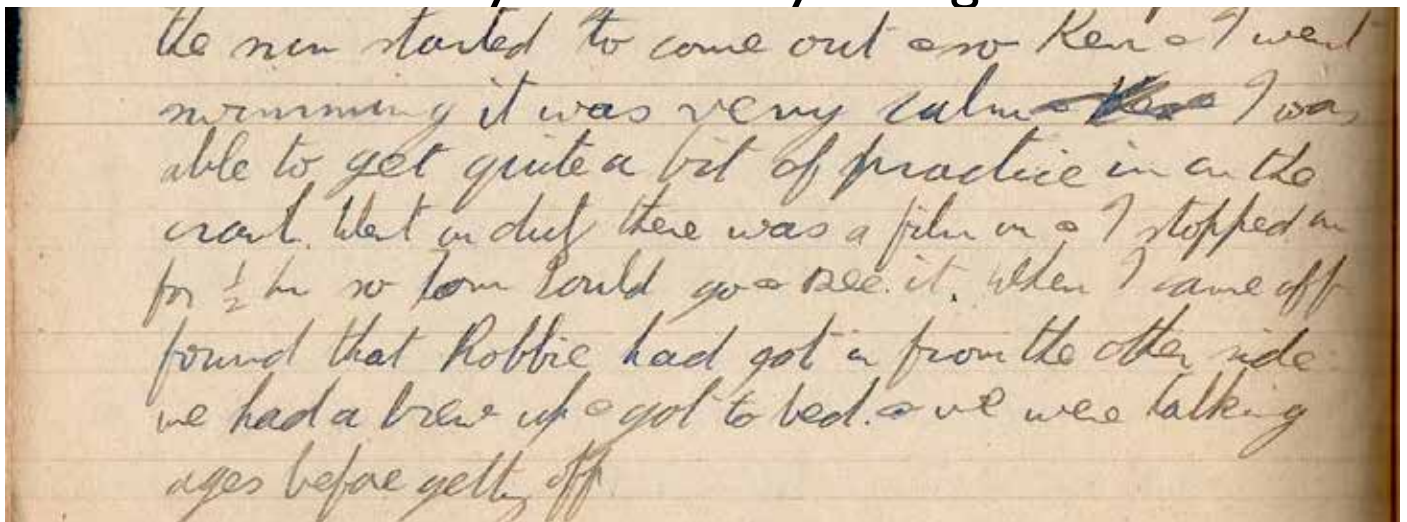 the sun started to come out & so Ken & I went
swimming it was very calm I was
able to get quite a bit of practice in on the
crawl. Went on duty there was a film on & I stopped on
for ½ hr so Tom could go & see it. When I came off
found that Robbie had got in from the other side.
we had a brew up & got to bed. & we were talking
ages before getting off